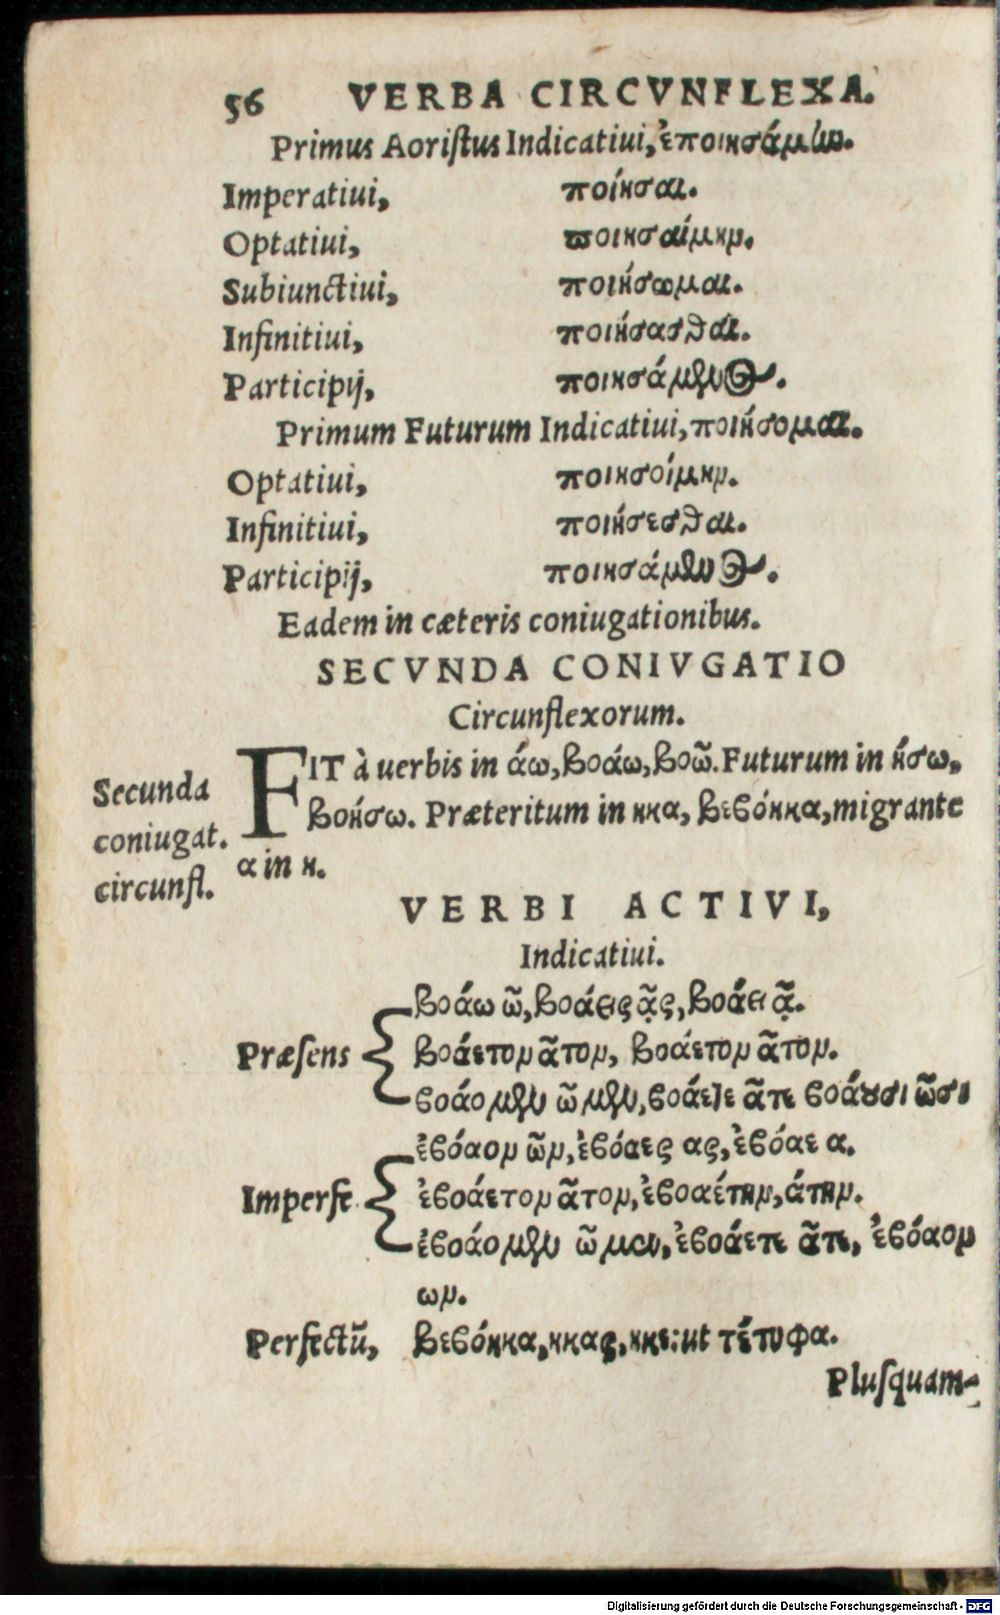 56 VERBA CIRCVNFLEXA.
Primus Aoriſtus Indicatiui, ἐποιησάμην.
Imperatiui, ποίησαι.
Optatiui, ϖοιησαίμην.
Subiunctiui, ποιήσωμαι.
Infinitiui, ποιήσασθαι.
Participij, ποιησάμενος.
Primum Futurum Indicatiui, ποιήσομαι.
Optatiui, ποιησοίμην.
Infinitiui, ποιήσεσθαι.
Participij, ποιησάμενος.
Eadem in cæteris coniugationibus.
SECVNDA CONIVGATIO
Circunflexorum.
Secunda
coniugat.
circunfl.
FIT à uerbis in άω, βοάω, βοῶ. Futurum in ήσω,
βοήσω. Præteritum in ηκα, βεϐόηκα, migrante
α in η.
VERBI ACTIVI,
Indicatiui.
βοάω ῶ, βοάεις ᾷς, βοάει ᾷ.
Præſens βοάετον ᾶτον, βοάετον ᾶτον.
ϐοάομεν ῶμεν, ϐοάετε ᾶτε ϐοάουσι ῶσι
ἐϐόαον ῶν, ἐϐόαες ας, ἐϐόαε α.
Imperfe ἐϐοάετον ᾶτον, ἐϐοαέτην, άτην.
ἐϐοάομεν ῶμεν, ἐϐοάετε ᾶτε, ἐϐόαον
ων.
Perfectũ, βεϐόηκα, ηκας, ηκε: ut τέτυφα.
Pluſquam-
Digitalisierung gefördert durch die Deutsche Forschungsgemeinschaft - DFG